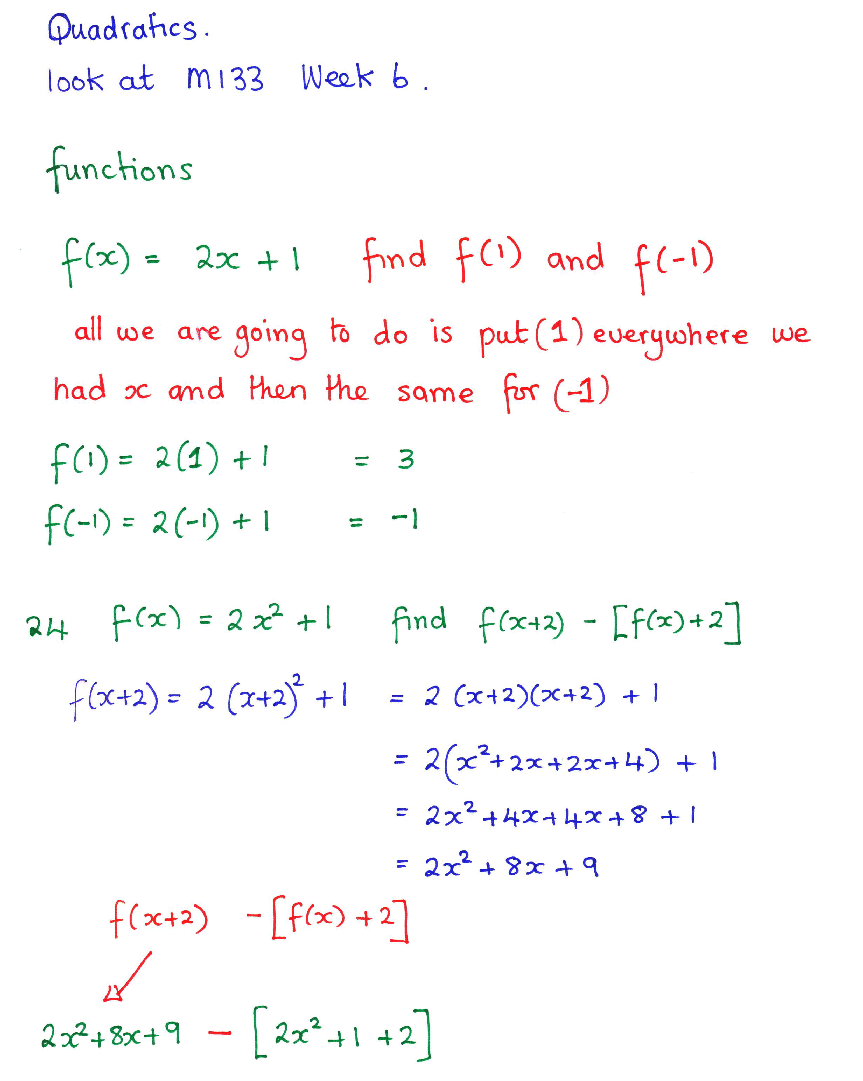 Quadratics.
look at M133 Week 6.
functions
f(x) = 2x + 1 find f(1) and f(-1)
all we are going to do is put (1) everywhere we
had x and then the same for (-1)
f(1) = 2(1) + 1 = 3
f(-1) = 2(-1) + 1 = -1
24 f(x) = 2x² + 1 find f(x+2) - [f(x)+2]
f(x+2) = 2(x+2)² + 1 = 2(x+2)(x+2) + 1
= 2(x²+2x+2x+4) + 1
= 2x²+4x+4x+8+1
= 2x²+8x+9
f(x+2) - [f(x)+2]
2x²+8x+9 - [2x²+1+2]